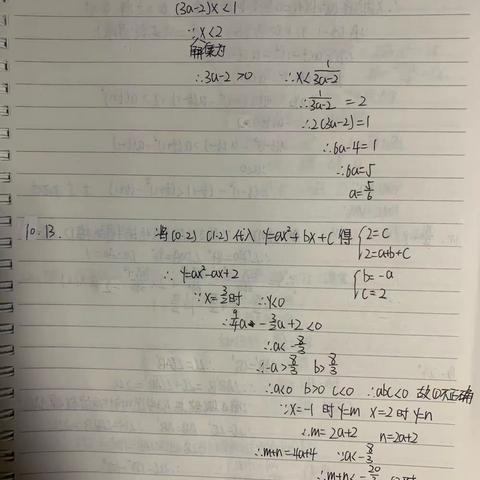 (3a-2)x<1
∵x<2
解集为
∴3a-2>0 ∴x<1/(3a-2)
∴1/(3a-2)=2
∴2(3a-2)=1
∴6a-4=1
∴6a=5
a=5/6
10.13. 将(0.2) (1.2)代入 y=ax²+bx+c 得 {2=c
{2=a+b+c
∴y=ax²-ax+2 {b=-a
{c=2
∵x=3/2时 ∴y<0
∴9/4a-3/2a+2<0
∴a<-8/3
∴-a>8/3 b>8/3
∴a<0 b>0 c<0 ∴abc<0 故①不正确
∵x=-1时y=m x=2时y=n
∴m=2a+2 n=2a+2
∴m+n=4a+4 ∵a<-8/3
∴m+n<-20/3